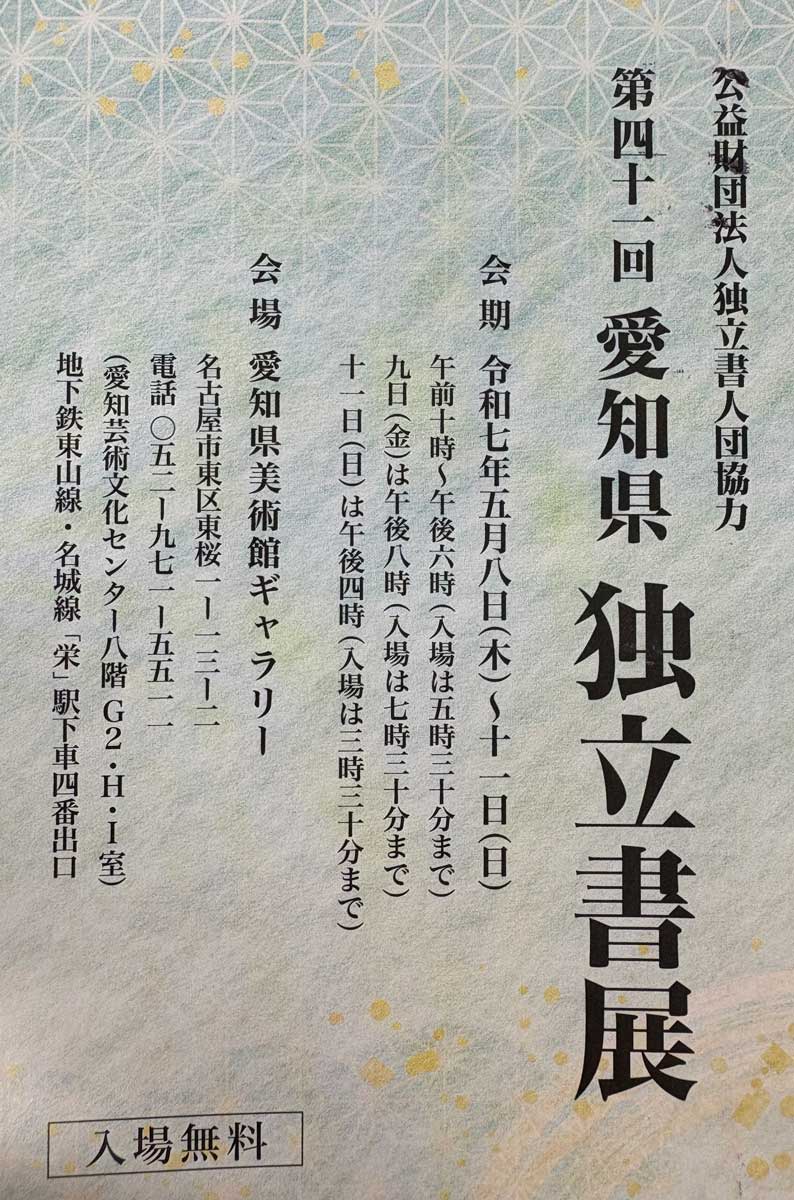 公益財団法人独立書人団協力
第四十一回 愛知県 独立書展
会期 令和七年五月八日(木)～十一日(日)
午前十時～午後六時(入場は五時三十分まで)
九日(金)は午後八時(入場は七時三十分まで)
十一日(日)は午後四時(入場は三時三十分まで)
会場 愛知県美術館ギャラリー
名古屋市東区東桜一ー一三ー二
電話 〇五二ー九七一ー五五一一
(愛知芸術文化センター八階 G2・H・I室)
地下鉄東山線・名城線「栄」駅下車四番出口
入場無料